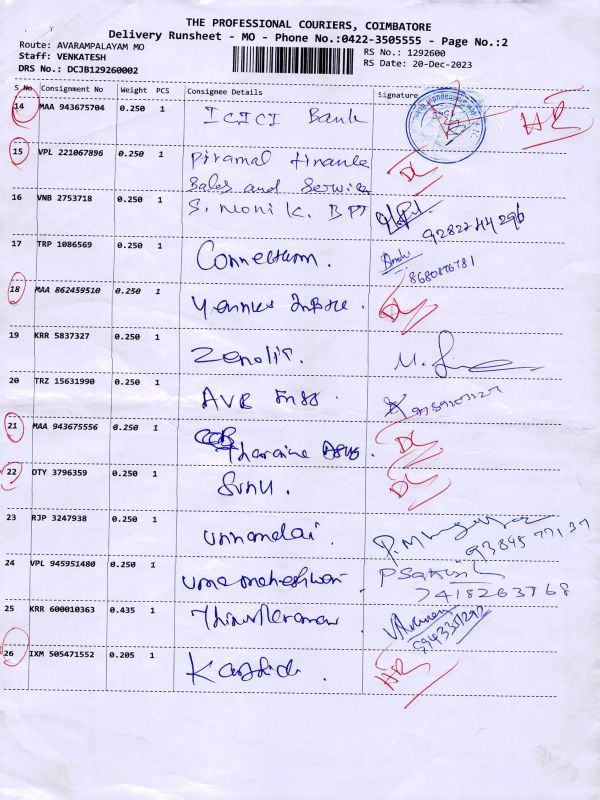 THE PROFESSIONAL COURIERS, COIMBATORE
Delivery Runsheet - MO - Phone No.:0422-3505555 - Page No.:2
Route: AVARAMPALAYAM MO
RS No.: 1292600
Staff: VENKATESH
RS Date: 20-Dec-2023
DRS No.: DCJB129260002
S No Consignment No Weight PCS Consignee Details Signature
14 MAA 943675704 0.250 1 ICICI Bank HR
15 VPL 221067896 0.250 1 Piramal finance DL
Sales and Service
16 VNB 2753718 0.250 1 S. Moni K. BPT
9282744296
17 TRP 1086569 0.250 1
8680876781
18 MAA 862459510 0.250 1 DL
19 KRR 5837327 0.250 1 Zenolit.
20 TRZ 15631990 0.250 1 AVR
21 MAA 943675556 0.250 1 DL
22 OTY 3796359 0.250 1 DL
23 RJP 3247938 0.250 1 Unnamalai.
9384577137
24 VPL 945951480 0.250 1 Umamaheshwari. P Sakthi
7418263768
25 KRR 600010363 0.435 1
26 IXM 505471552 0.205 1 HR